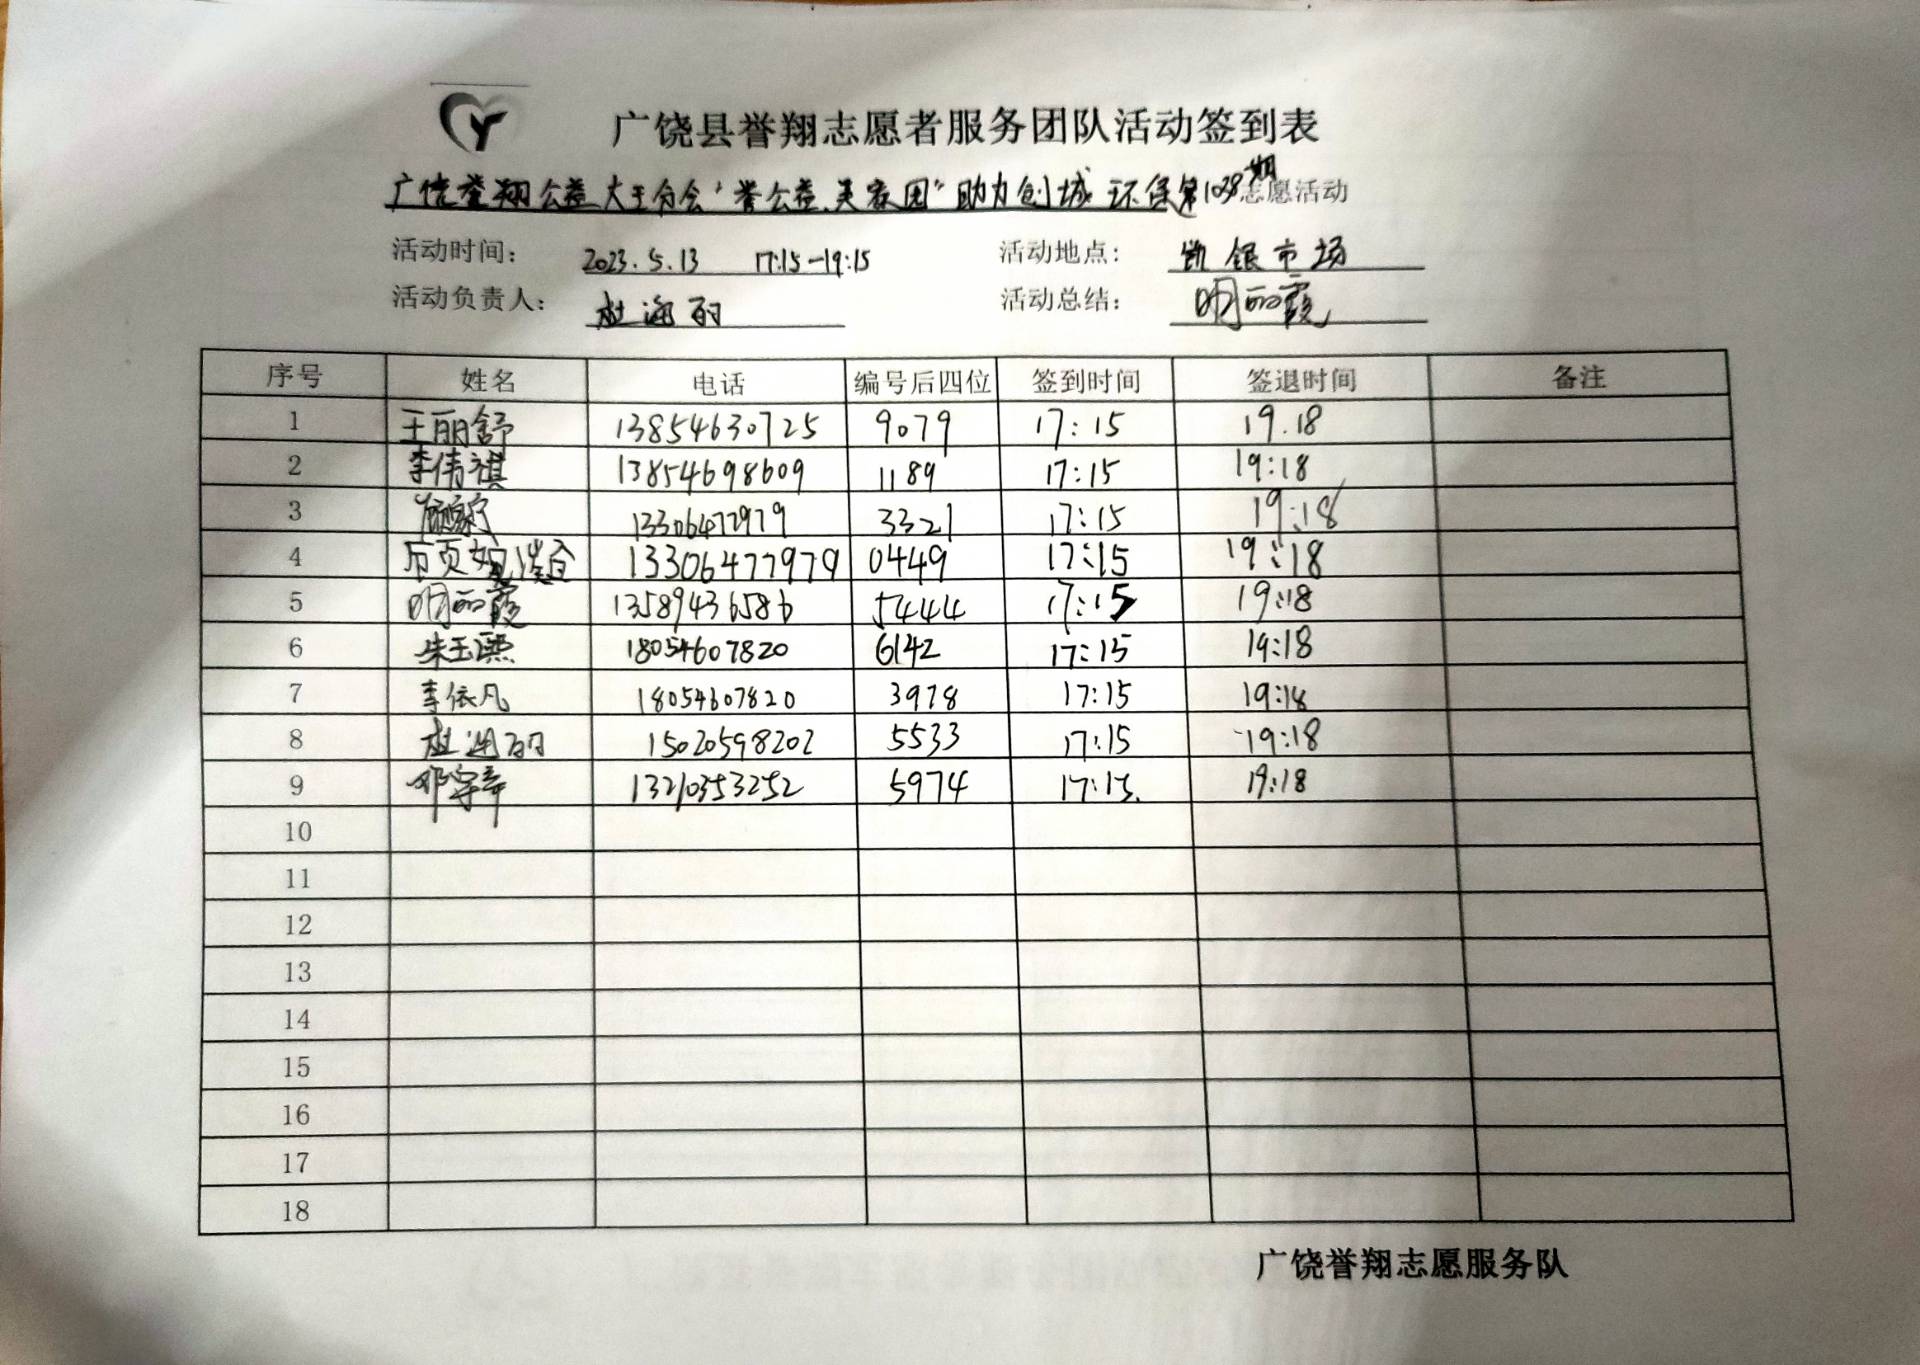 广饶县誉翔志愿者服务团队活动签到表
广饶誉翔公益大王分会“誉公益.美家园”助力创城环保第1038期志愿活动
活动时间: 2023.5.13 17:15-19:15 活动地点: 凯银市场
活动负责人: 杜海丽 活动总结: 明丽霞
序号 姓名 电话 编号后四位 签到时间 签退时间 备注
1 王丽舒 13854630725 9079 17:15 19.18
2 李伟祺 13854698609 1189 17:15 19:18
3 13306477979 3321 17:15 19:18
4 13306477979 0449 17:15 19:18
5 明丽霞 13589436586 5444 17:15 19:18
6 朱玉 18054607820 6142 17:15 19:18
7 李依凡 18054607820 3978 17:15 19:18
8 杜海丽 15020598202 5533 17:15 19:18
9 邓宇 13210353252 5974 17:15. 19:18
10
11
12
13
14
15
16
17
18
广饶誉翔志愿服务队